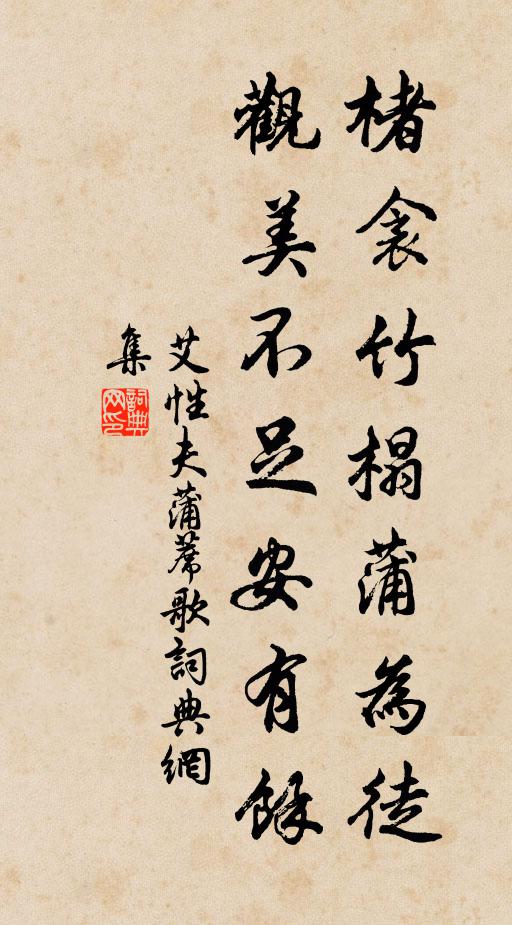 楮衾竹榻蒲為徒
觀美不足安有餘
艾性夫蒲席歌詞典網
集
詞典
网印